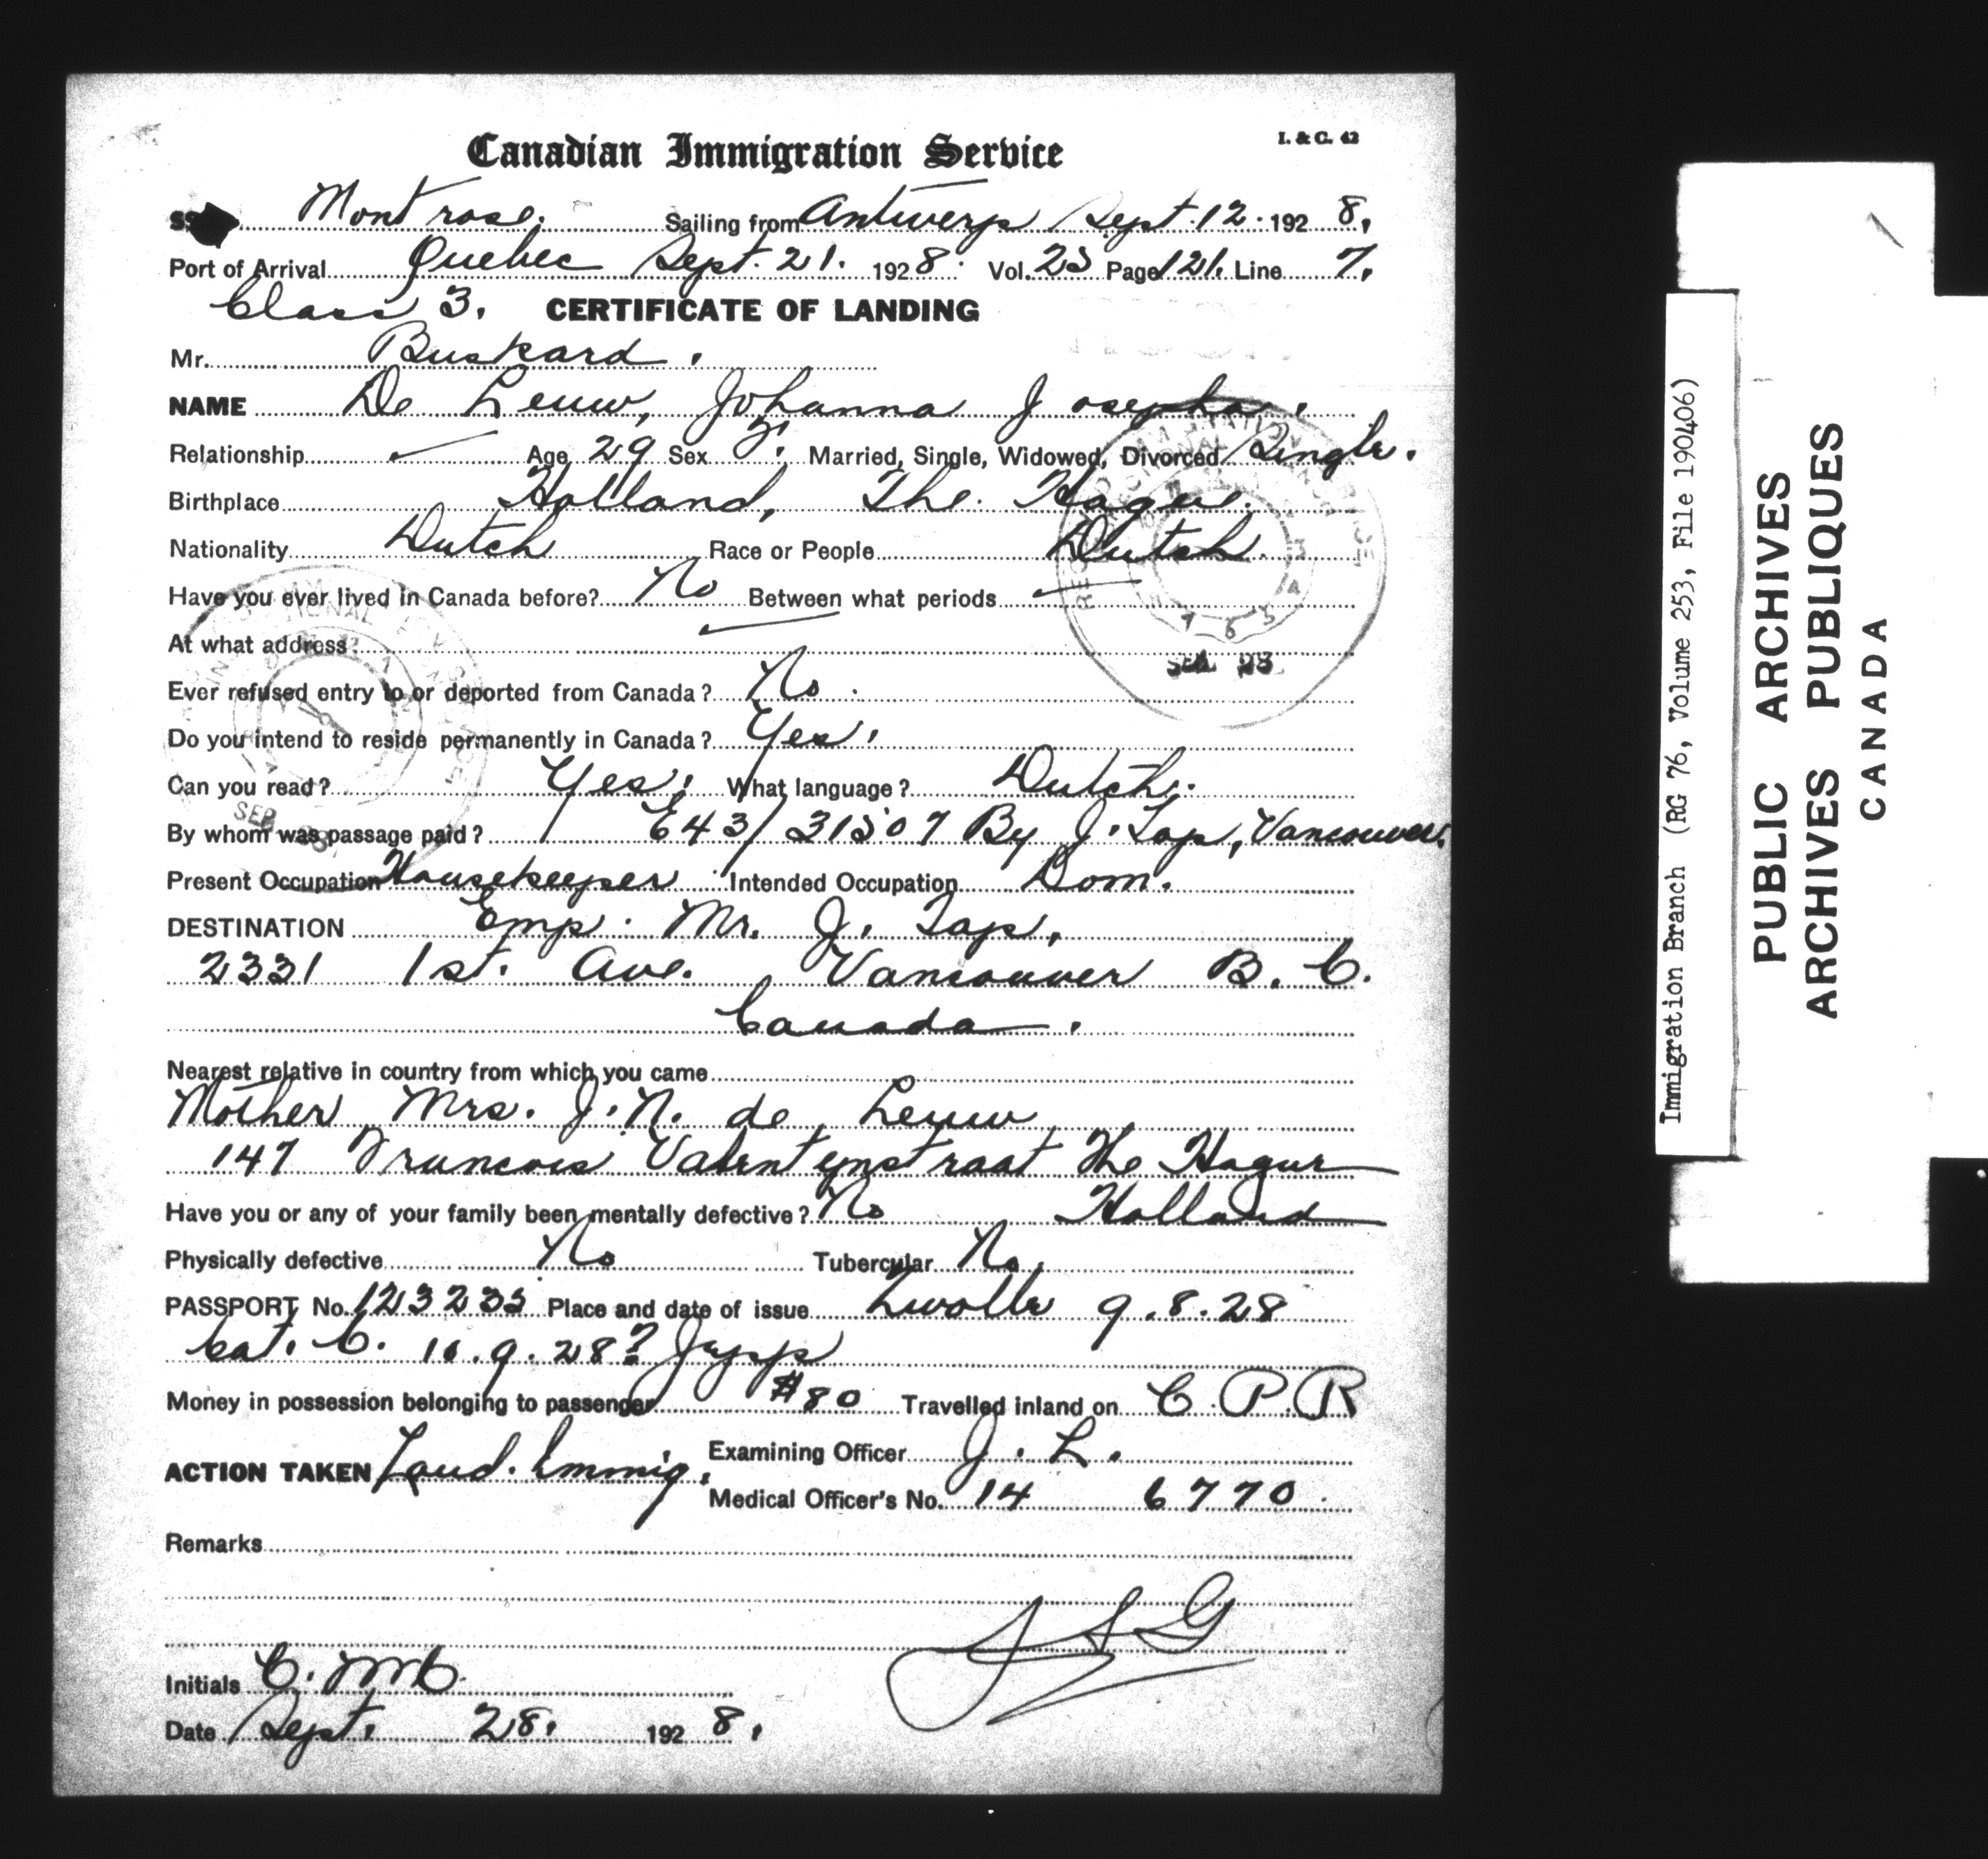 I. & C. 42
Canadian Immigration Service
SS Montrose. Sailing from Antwerp Sept. 12. 1928.
Port of Arrival Quebec Sept. 21. 1928. Vol. 23 Page 121. Line 7.
Class 3. CERTIFICATE OF LANDING
Mr. Buskard.
NAME De Leuw, Johanna Josepha.
Relationship Age 29 Sex F. Married, Single, Widowed, Divorced Single.
Birthplace Holland, The Hague.
Nationality Dutch Race or People Dutch.
Have you ever lived in Canada before? No Between what periods
At what address?
Ever refused entry to or deported from Canada? No.
Do you intend to reside permanently in Canada? Yes.
Can you read? Yes. What language? Dutch.
By whom was passage paid? E43/31507 By J. Tap, Vancouver.
Present Occupation Housekeeper Intended Occupation Dom.
DESTINATION Emp. Mr. J. Tap,
2331 1st. Ave. Vancouver B. C.
Canada.
Nearest relative in country from which you came
Mother Mrs. J. N. de Leuw
147 Francois Valentynstraat The Hague
Holland
Have you or any of your family been mentally defective? No
Physically defective No Tubercular No.
PASSPORT No. 123233 Place and date of issue Zwolle 9.8.28
Cat. C. 10.9.28? Jypp
Money in possession belonging to passenger $80 Travelled inland on C.P.R
ACTION TAKEN Land. Immig. Examining Officer J. L.
Medical Officer's No. 14 6770.
Remarks
Initials C. McC.
Date Sept. 28. 1928.
SEP 28
SEP 28
Immigration Branch (RG 76, Volume 253, File 190406)
PUBLIC ARCHIVES
ARCHIVES PUBLIQUES
CANADA